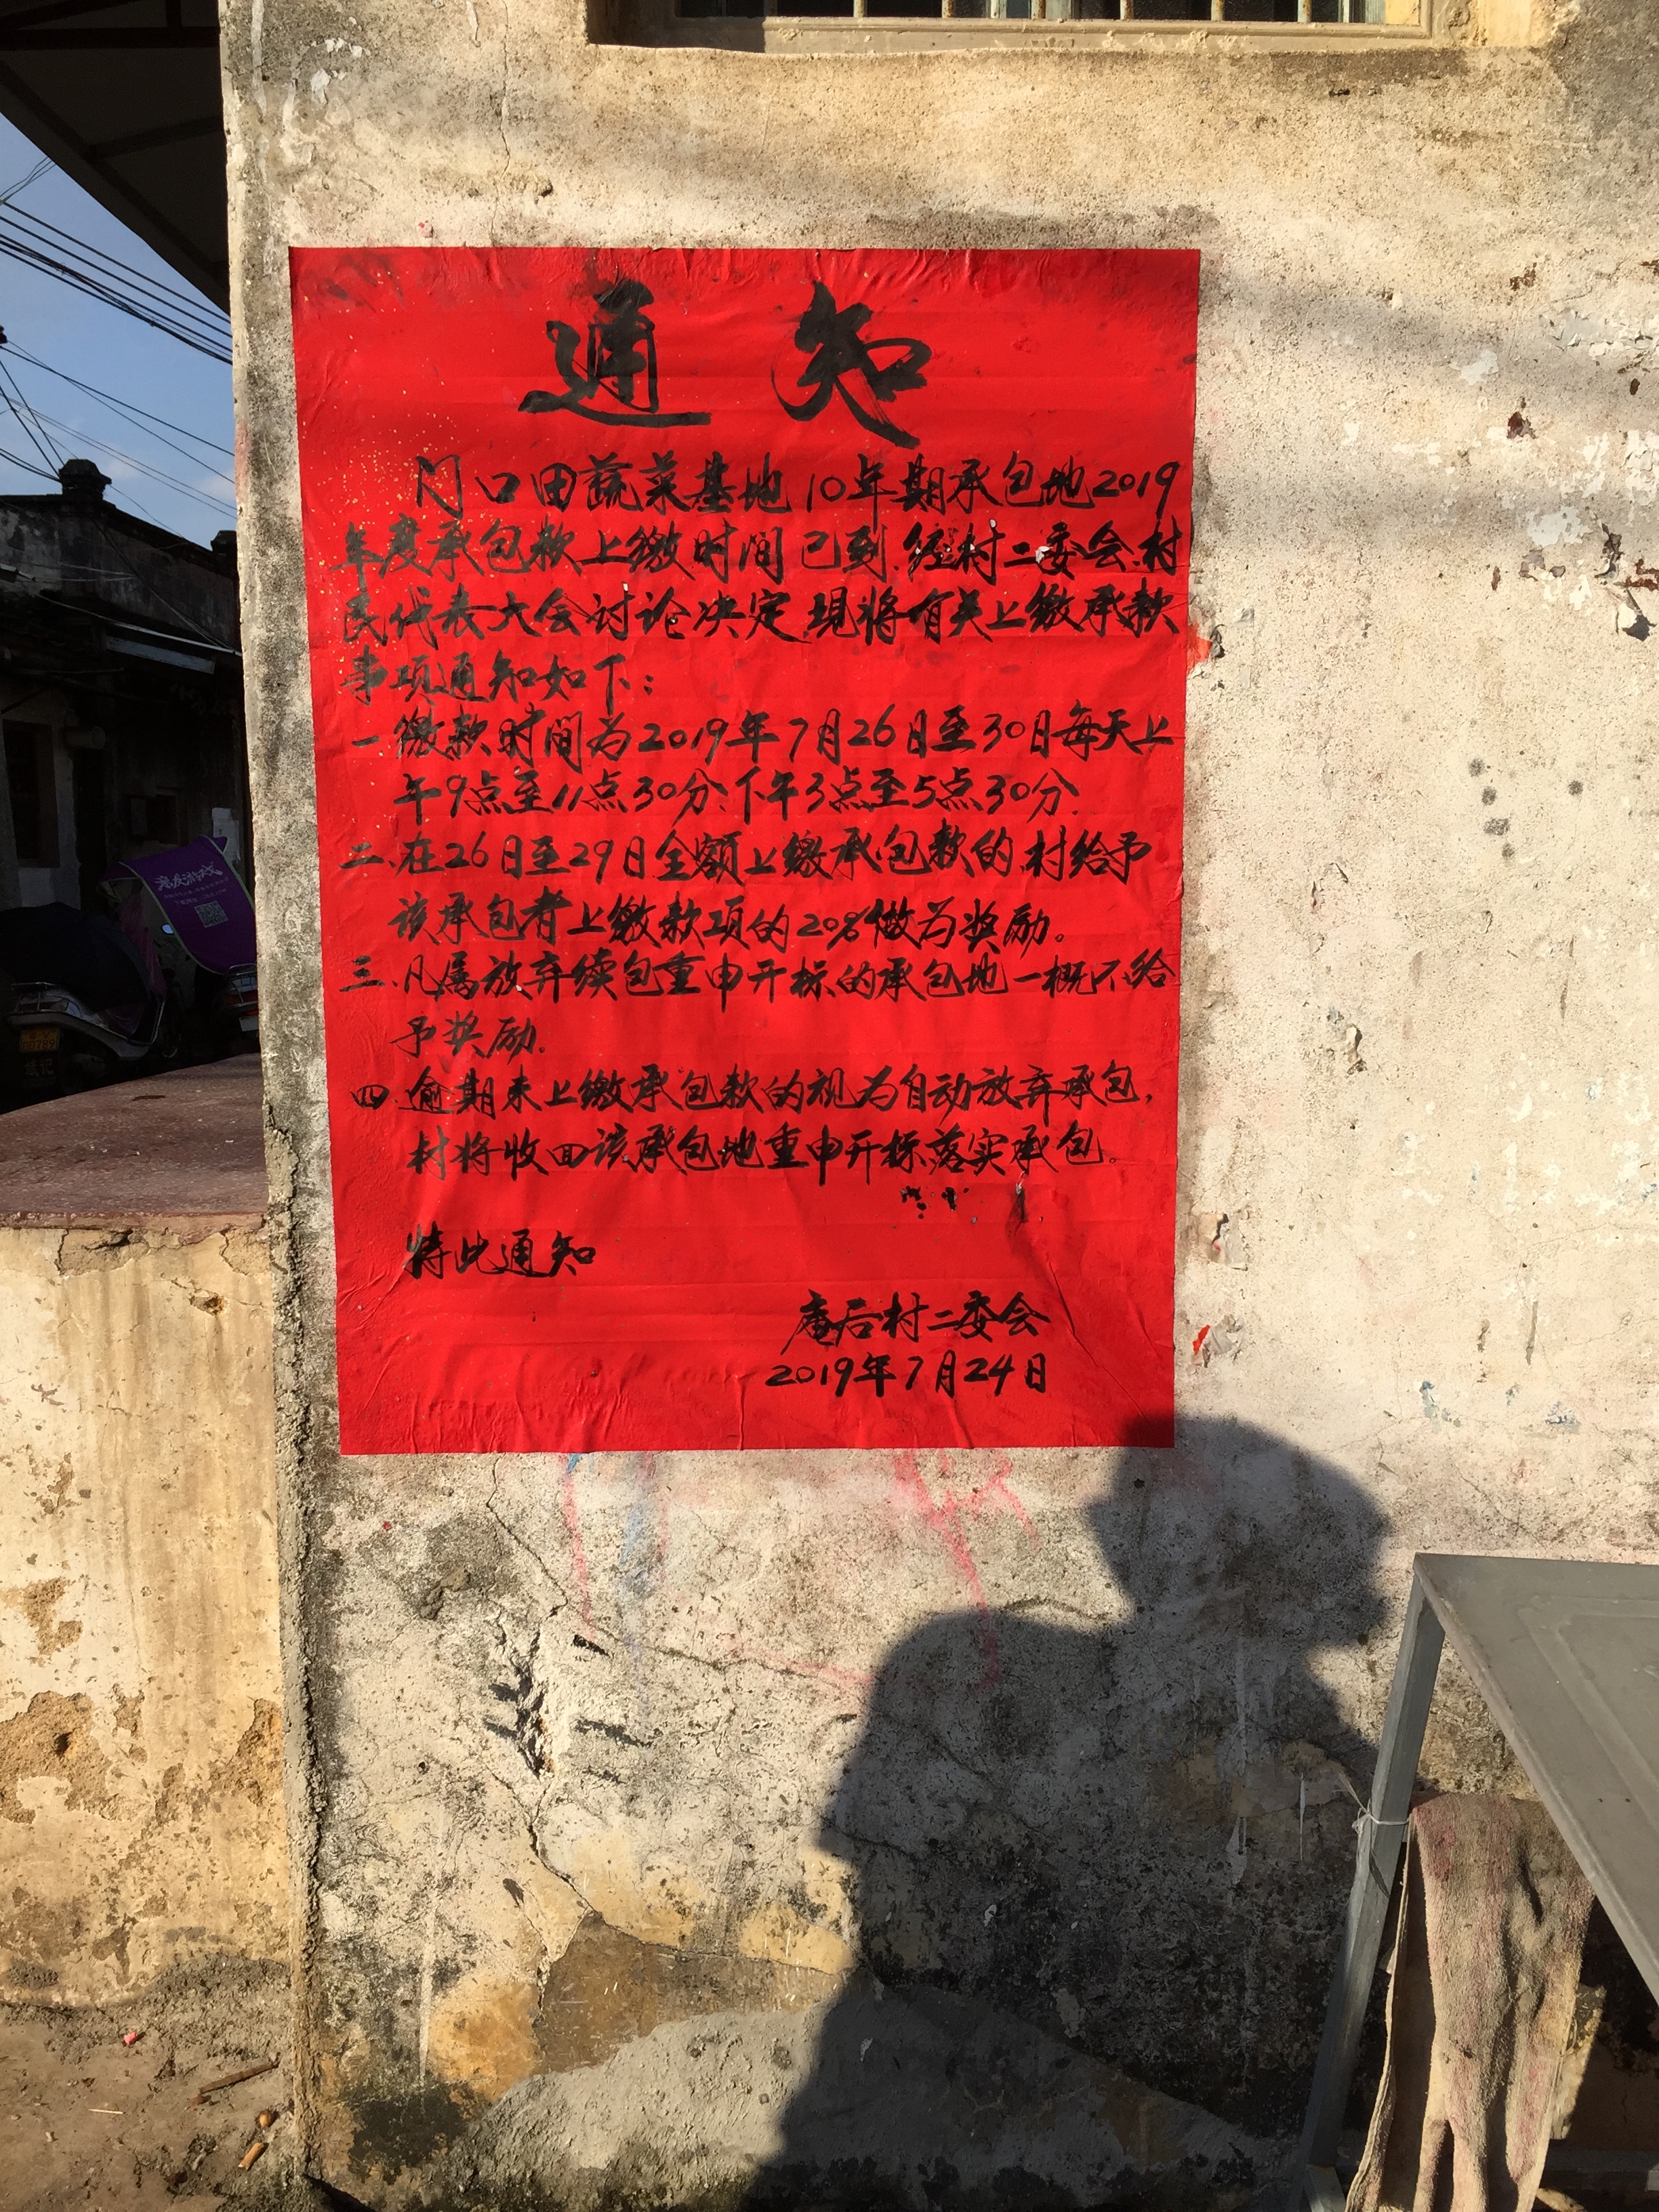 通知
门口田蔬菜基地10年期承包地2019
年度承包款上缴时间已到.经村二委会.村
民代表大会讨论决定.现将有关上缴承款
事项通知如下:
一.缴款时间为2019年7月26日至30日每天上
午9点至11点30分.下午3点至5点30分.
二.在26日至29日全额上缴承包款的.村给予
该承包者上缴款项的20%做为奖励。
三.凡属放弃续包重申开标的承包地一概不给
予奖励.
四.逾期未上缴承包款的视为自动放弃承包,
村将收回该承包地重申开标落实承包。
特此通知
庵后村二委会
2019年7月24日